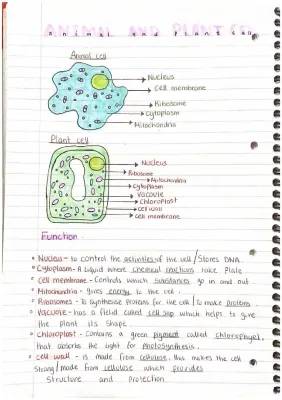 ANIMAL AND PLANT CELL
Animal and Plant cell
Animal cell
Nucleus
Cell membrane
Ribosome
Cytoplasm
Mitochondria
Plant cell
Nucleus
Ribosome
Mitochondria
Cytoplasm
Vacuole
Chloroplast
Cell wall
Cell membrane
Function
Nucleus - to control the activities of the cell / Stores DNA.
Cytoplasm - A liquid where chemical reactions take Plate
Cell membrane - Controls which substances go in and out
Mitochondria - gives energy to the cell.
Ribosomes - To synthesise proteins for the cell / to make proteins.
Vacuole - has a field called cell sap which helps to give
the plant its Shape
Chloroplast - contains a green pigment called chlorophyll,
that absorbs the light for photosynthesis.
Cell wall - is made from cellulose, this makes the cell
Strong / made from cellulose which provides
Structure and protection